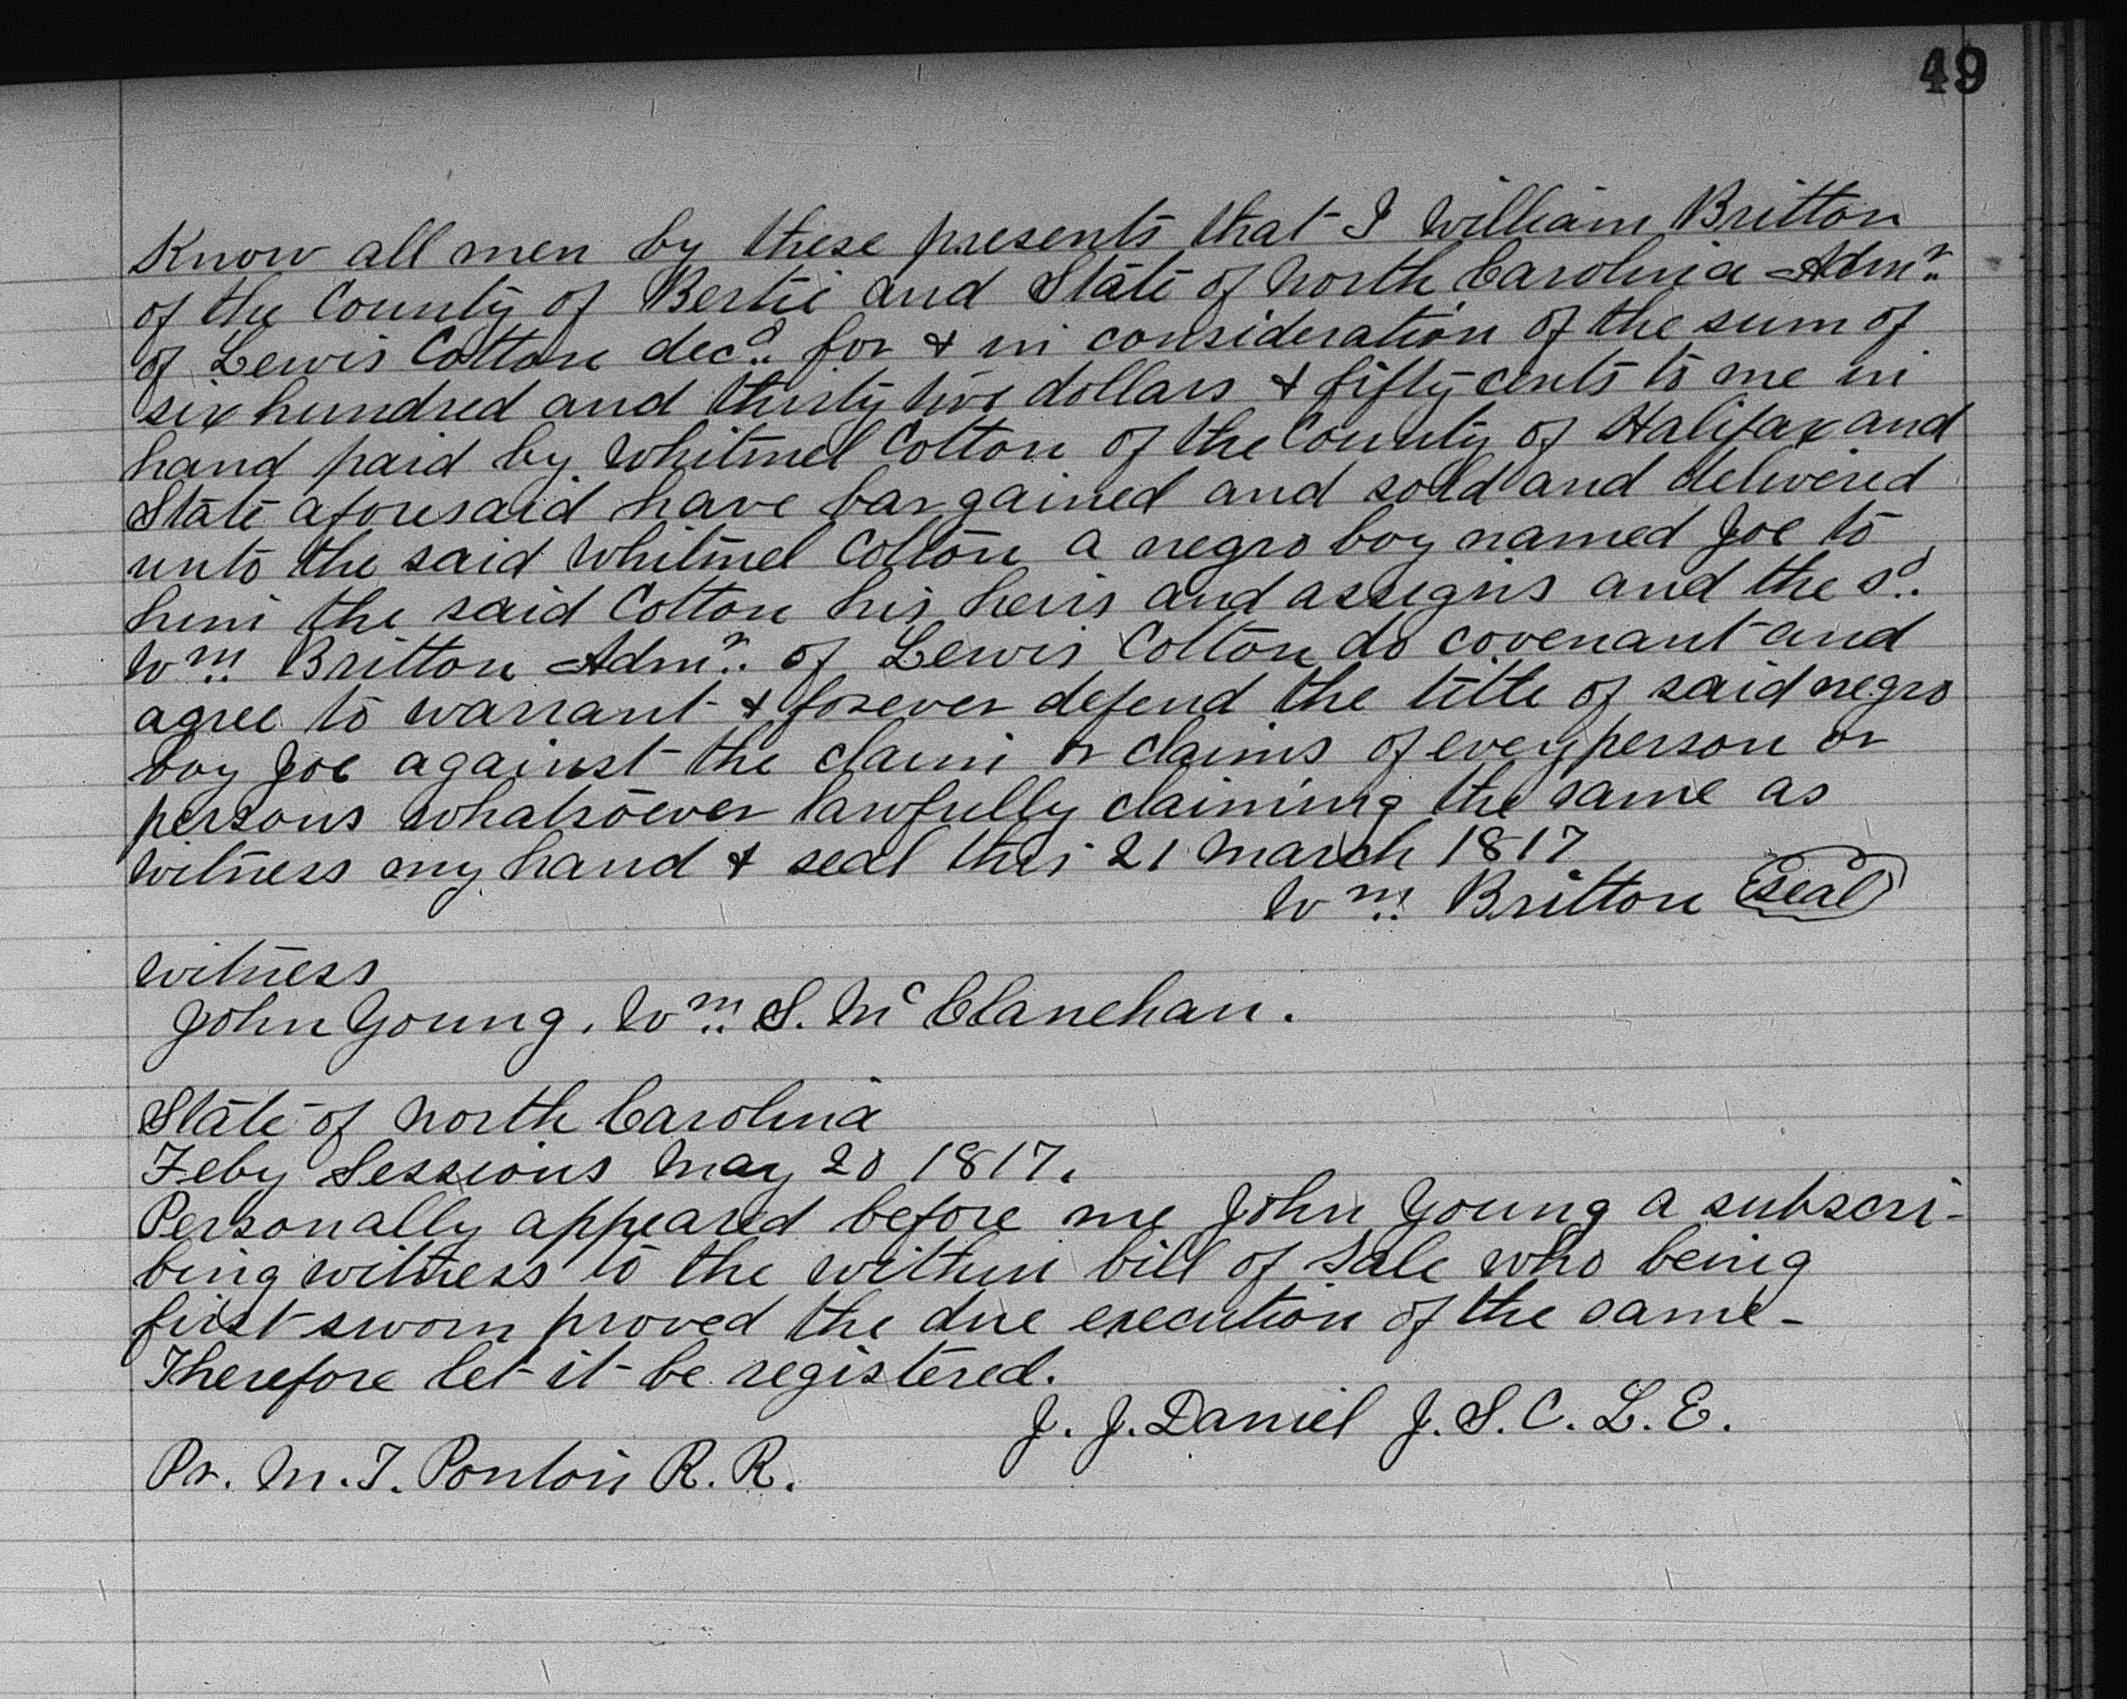 49
Know all men by these presents that I William Britton
of the County of Bertie and State of North Carolina Admr.
of Lewis Cotton decd. for & in consideration of the sum of
six hundred and thirty two dollars & fifty cents to me in
hand paid by Whitmel Cotton of the County of Halifax and
State aforesaid have bargained and sold and delivered
unto the said Whitmel Cotton a negro boy named Joe to
him the said Cotton his heirs and assigns and the sd.
Wm. Britton Admr. of Lewis Cotton do covenant and
agree to warrant & forever defend the title of said negro
boy Joe against the claim or claims of every person or
persons whatsoever lawfully claiming the same as
witness my hand & seal this 21 March 1817
Wm. Britton Seal
Witness
John Young. Wm. S. McClanehan.
State of North Carolina
Feby Sessions May 20 1817.
Personally appeared before me John Young a subscri-
bing witness to the within bill of sale who being
first sworn proved the due execution of the same -
Therefore let it be registered.
J. J. Daniel J. S. C. L. E.
Pr. M. T. Ponton R. R.